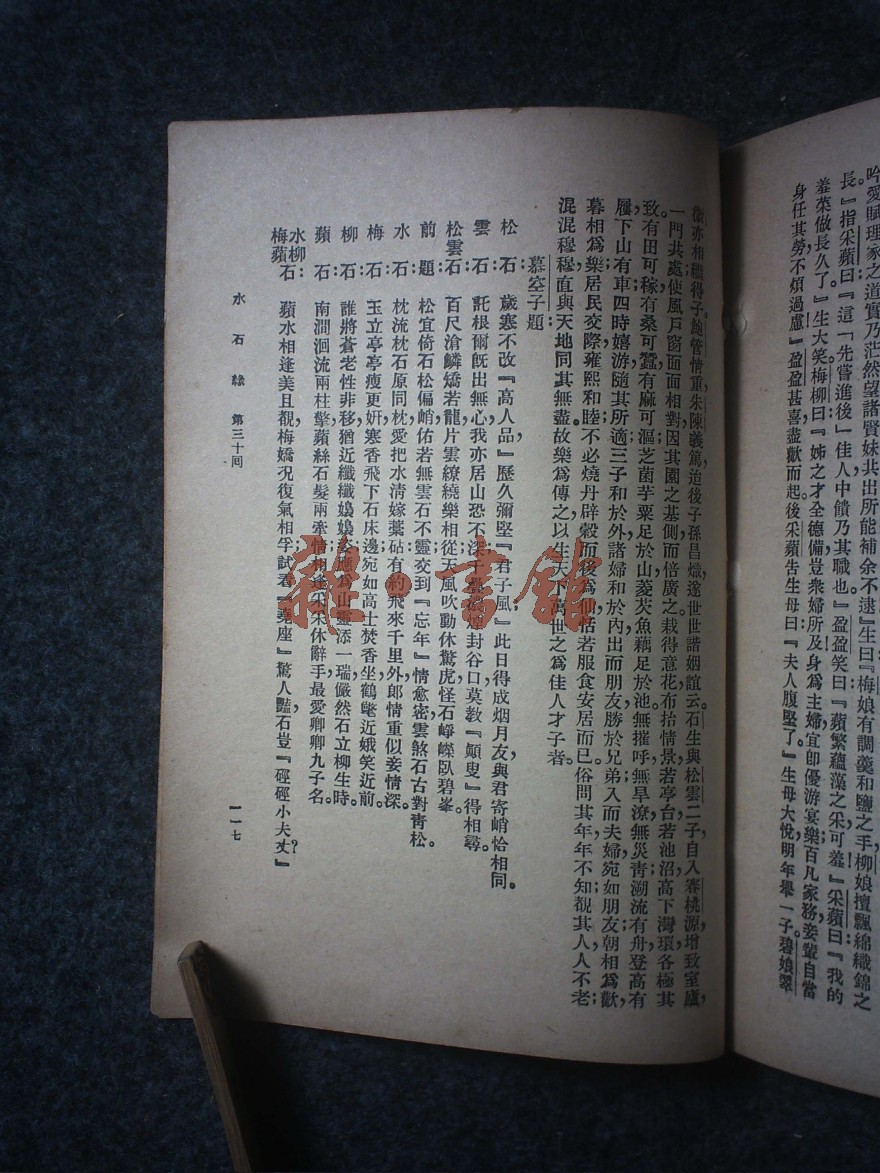 吟愛賦理家之道實乃茫然望諸賢妹共出所能補余不逮』生曰『梅娘有調羹和鹽之手柳娘擅飄綿織錦之
長。』指采蘋曰『這「先嘗進後」佳人中饋乃其職也』盈盈笑曰『蘋繁蘊藻之采可羞』采蘋曰『我的
羞菜做長久了。』生大笑梅柳曰『姊之才全德備豈衆婦所及身爲主婦宜卽優游宴樂百凡家務妾輩自當
身任其勞不煩過慮』盈盈甚喜盡歡而起後采蘋告生母曰『夫人腹堅了』生母大悅明年舉一子碧娘翠
亦相繼得子。鮑管情重朱陳義篤迨後子孫昌熾遂世世諧姻誼云。石生與松雲二子，自入春桃源，增致室廬，
一門共處，使風戶窗面面相對，因其園之基，側而倍廣之。栽得意花，布拾情景，若亭台，若池沼，高下灣環，各極其
致。有田可稼，有桑可蠶，有麻可漚，芝菌芋粟足於山，菱芡魚藕足於池。無摧呼，無旱潦，無災眚；溯流有舟，登高有
屨，下山有車，四時嬉游，隨其所適。三子和於外，諸婦和於內，出而朋友勝於兄弟，入而夫婦宛如朋友，朝相爲歡，
暮相爲樂，居民交際，雍熙和睦，不必燒丹辟穀而後爲仙，恬若服食安居而已。俗問其年，年不知；覩其人，人不老；
混混穆穆，直與天地同其無盡。故樂爲傳之，以生天下萬世之爲佳人才子者。
慕空子題
松 石： 歲寒不改『高人品』，歷久彌堅『君子風』，此日得成烟月友，與君寄峭恰相同。
雲 石： 託根爾旣出無心，我亦居山恐不深；封谷口，莫敎『顚叟』得相尋。
松雲石： 百尺滄鱗矯若龍，片雲繚繞樂相從，天風吹動休驚虎，怪石崢嶸臥碧峯。
前 題： 松宜倚石松偏峭，佑若無雲石不靈，交到『忘年』情愈密，雲煞石古對靑松。
水 石： 枕流枕石原同枕，愛把水清嫁藁砧，有約飛來千里外，郎情重似妾情深。
梅 石： 玉立亭亭瘦更妍，寒香飛下石床邊，宛如高士焚香坐，鶴氅近娥笑近前。
柳 石： 誰將蒼老性非移，猶近纖纖嫋嫋姿，應爲山靈添一瑞，儼然石立柳生時。
蘋 石： 南澗洄流兩柱擎，蘋絲石髮兩牽情，相逢采采休辭手，最愛卿卿九子名。
水柳梅蘋石： 蘋水相逢美且覩，梅嬌況復氣相孚，試看『堯座』驚人豔，石豈『硜硜小夫丈』？
水石緣 第三十囘
一一七
雜·書館